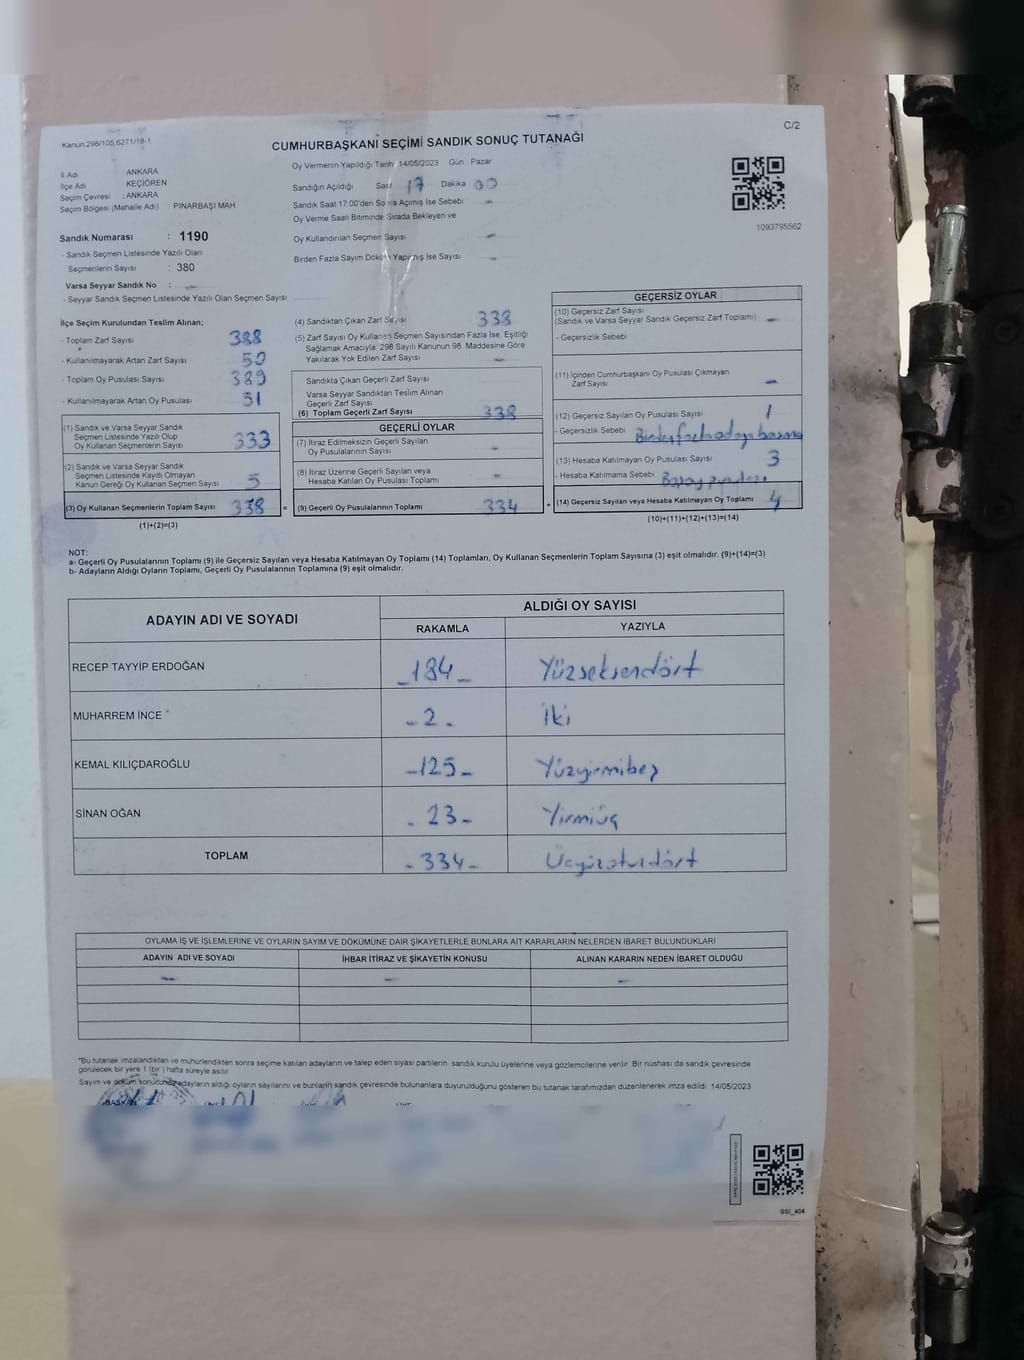 Kanun:298/105,6271/18-1
CUMHURBAŞKANİ SEÇİMİ SANDIK SONUÇ TUTANAĞI
C/2
İl Adı ANKARA
İlçe Adı KEÇİÖREN
Seçim Çevresi : ANKARA
Seçim Bölgesi (Mahalle Adı) : PINARBAŞI MAH
Oy Vermenin Yapıldığı Tarih 14/05/2023 Gün Pazar
Sandığın Açıldığı Saat 17 Dakika 00
Sandık Saat 17:00'den Sonra Açımış İse Sebebi -
Oy Verme Saati Bitiminde Sırada Bekleyen ve
Oy Kullandırılan Seçmen Sayısı -
Birden Fazla Sayım Döküm Yapılmış İse Sayısı -
1093795562
Sandık Numarası : 1190
- Sandık Seçmen Listesinde Yazılı Olan
Seçmenlerin Sayısı : 380
Varsa Seyyar Sandık No : -
- Seyyar Sandık Seçmen Listesinde Yazılı Olan Seçmen Sayısı
İlçe Seçim Kurulundan Teslim Alınan;
- Toplam Zarf Sayısı 388
- Kullanılmayarak Artan Zarf Sayısı 50
- Toplam Oy Pusulası Sayısı 389
- Kullanılmayarak Artan Oy Pusulası 51
(1) Sandık ve Varsa Seyyar Sandık
Seçmen Listesinde Yazılı Olup
Oy Kullanan Seçmenlerin Sayısı 333
(2) Sandık ve Varsa Seyyar Sandık
Seçmen Listesinde Kayıtlı Olmayan
Kanun Gereği Oy Kullanan Seçmen Sayısı 5
(3) Oy Kullanan Seçmenlerin Toplam Sayısı 338 =
(1)+(2)=(3)
(4) Sandıktan Çıkan Zarf Sayısı 338
(5) Zarf Sayısı Oy Kullanan Seçmen Sayısından Fazla İse, Eşitliği
Sağlamak Amacıyla, 298 Sayılı Kanunun 98. Maddesine Göre
Yakılarak Yok Edilen Zarf Sayısı -
Sandıkta Çıkan Geçerli Zarf Sayısı
Varsa Seyyar Sandıktan Teslim Alınan
Geçerli Zarf Sayısı
(6) Toplam Geçerli Zarf Sayısı 338
GEÇERLİ OYLAR
(7) İtiraz Edilmeksizin Geçerli Sayılan
Oy Pusulası Sayısı -
(8) İtiraz Üzerine Geçerli Sayılan veya
Hesaba Katılan Oy Pusulası Toplamı -
(9) Geçerli Oy Pusulalarının Toplamı 334 +
GEÇERSİZ OYLAR
(10) Geçersiz Zarf Sayısı
(Sandık ve Varsa Seyyar Sandık Geçersiz Zarf Toplamı) -
- Geçersizlik Sebebi
(11) İçinden Cumhurbaşkanı Oy Pusulası Çıkmayan
Zarf Sayısı -
(12) Geçersiz Sayılan Oy Pusulası Sayısı 1
- Geçersizlik Sebebi Birden fazla adaya basma
(13) Hesaba Katılmayan Oy Pusulası Sayısı 3
- Hesaba Katılmama Sebebi
(14) Geçersiz Sayılan veya Hesaba Katılmayan Oy Toplamı 4
(10)+(11)+(12)+(13)=(14)
NOT:
a- Geçerli Oy Pusulalarının Toplamı (9) ile Geçersiz Sayılan veya Hesaba Katılmayan Oy Toplamı (14) Toplamları, Oy Kullanan Seçmenlerin Toplam Sayısına (3) eşit olmalıdır. (9)+(14)=(3)
b- Adayların Aldığı Oyların Toplamı, Geçerli Oy Pusulalarının Toplamına (9) eşit olmalıdır.
ADAYIN ADI VE SOYADI
ALDIĞI OY SAYISI
RAKAMLA YAZIYLA
RECEP TAYYİP ERDOĞAN -184- Yüzseksendört
MUHARREM İNCE -2- İki
KEMAL KILIÇDAROĞLU -125- Yüzyirmibeş
SİNAN OĞAN - 23- Yirmiüç
TOPLAM - 334- Üçyüzotuzdört
OYLAMA İŞ VE İŞLEMLERİNE VE OYLARIN SAYIM VE DÖKÜMÜNE DAİR ŞİKAYETLERLE BUNLARA AİT KARARLARIN NELERDEN İBARET BULUNDUKLARI
ADAYIN ADI VE SOYADI İHBAR İTİRAZ VE ŞİKAYETİN KONUSU ALINAN KARARIN NEDEN İBARET OLDUĞU
- - -
*Bu tutanak imzalandıktan ve mühürlendikten sonra seçime katılan adayların ve talep eden siyasi partilerin sandık kurulu üyelerine veya gözlemcilerine verilir. Bir nüshası da sandık çevresinde
görülecek bir yere 1 (bir) hafta süreyle asılır
Sayım ve döküm sonucunda adayların aldığı oyların sayılarını ve bunların sandık çevresinde bulunanlara duyurulduğunu gösteren bu tutanak tarafımızdan düzenlenerek imza edildi. 14/05/2023
BAŞKAN
SSI_404